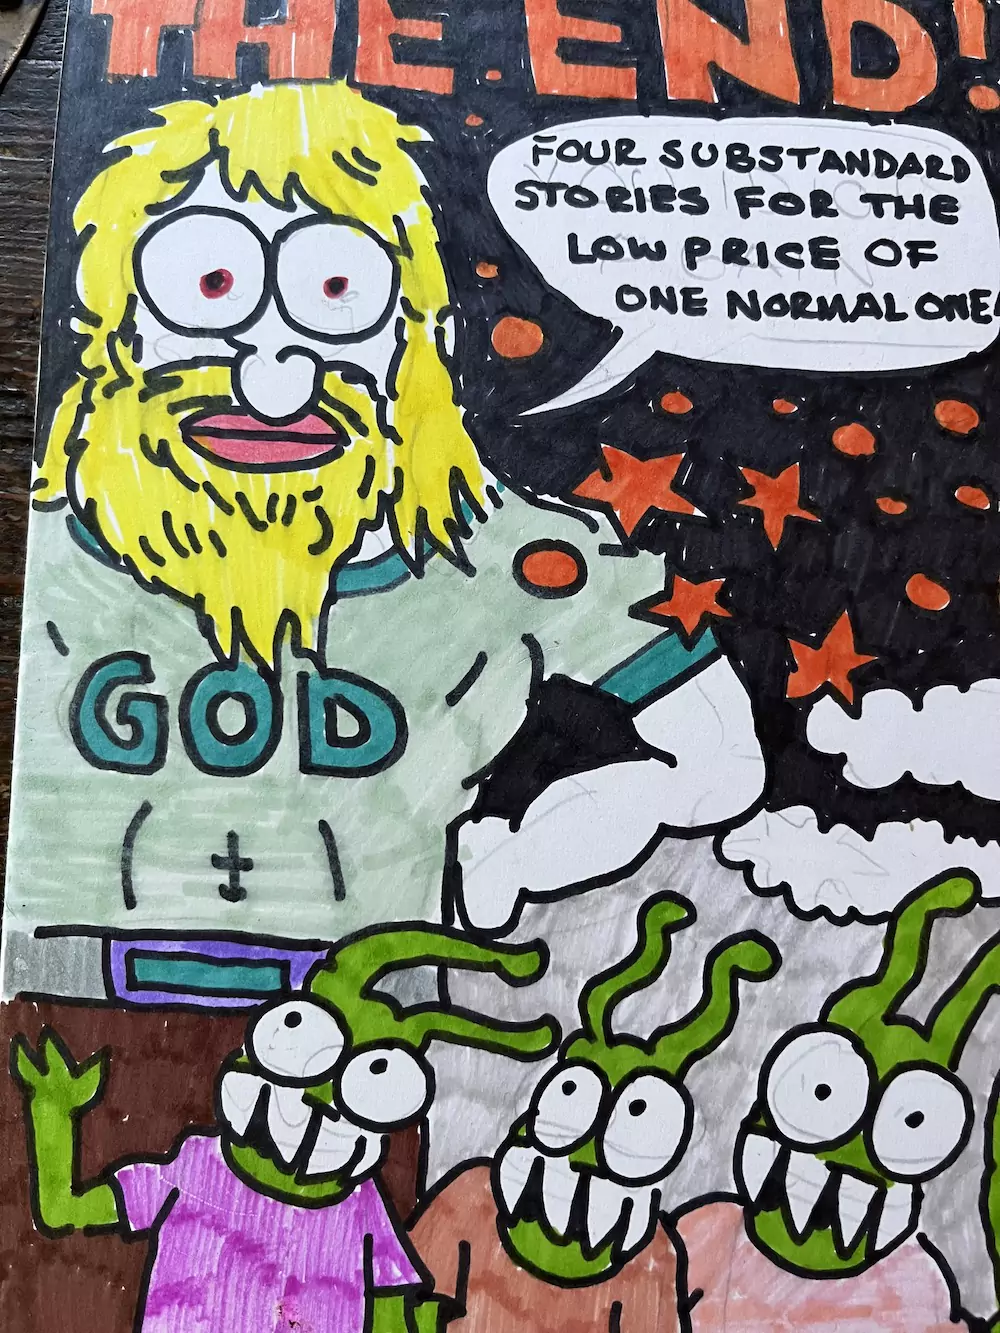 THE END!
FOUR SUBSTANDARD
STORIES FOR THE
LOW PRICE OF
ONE NORMAL ONE.
GOD